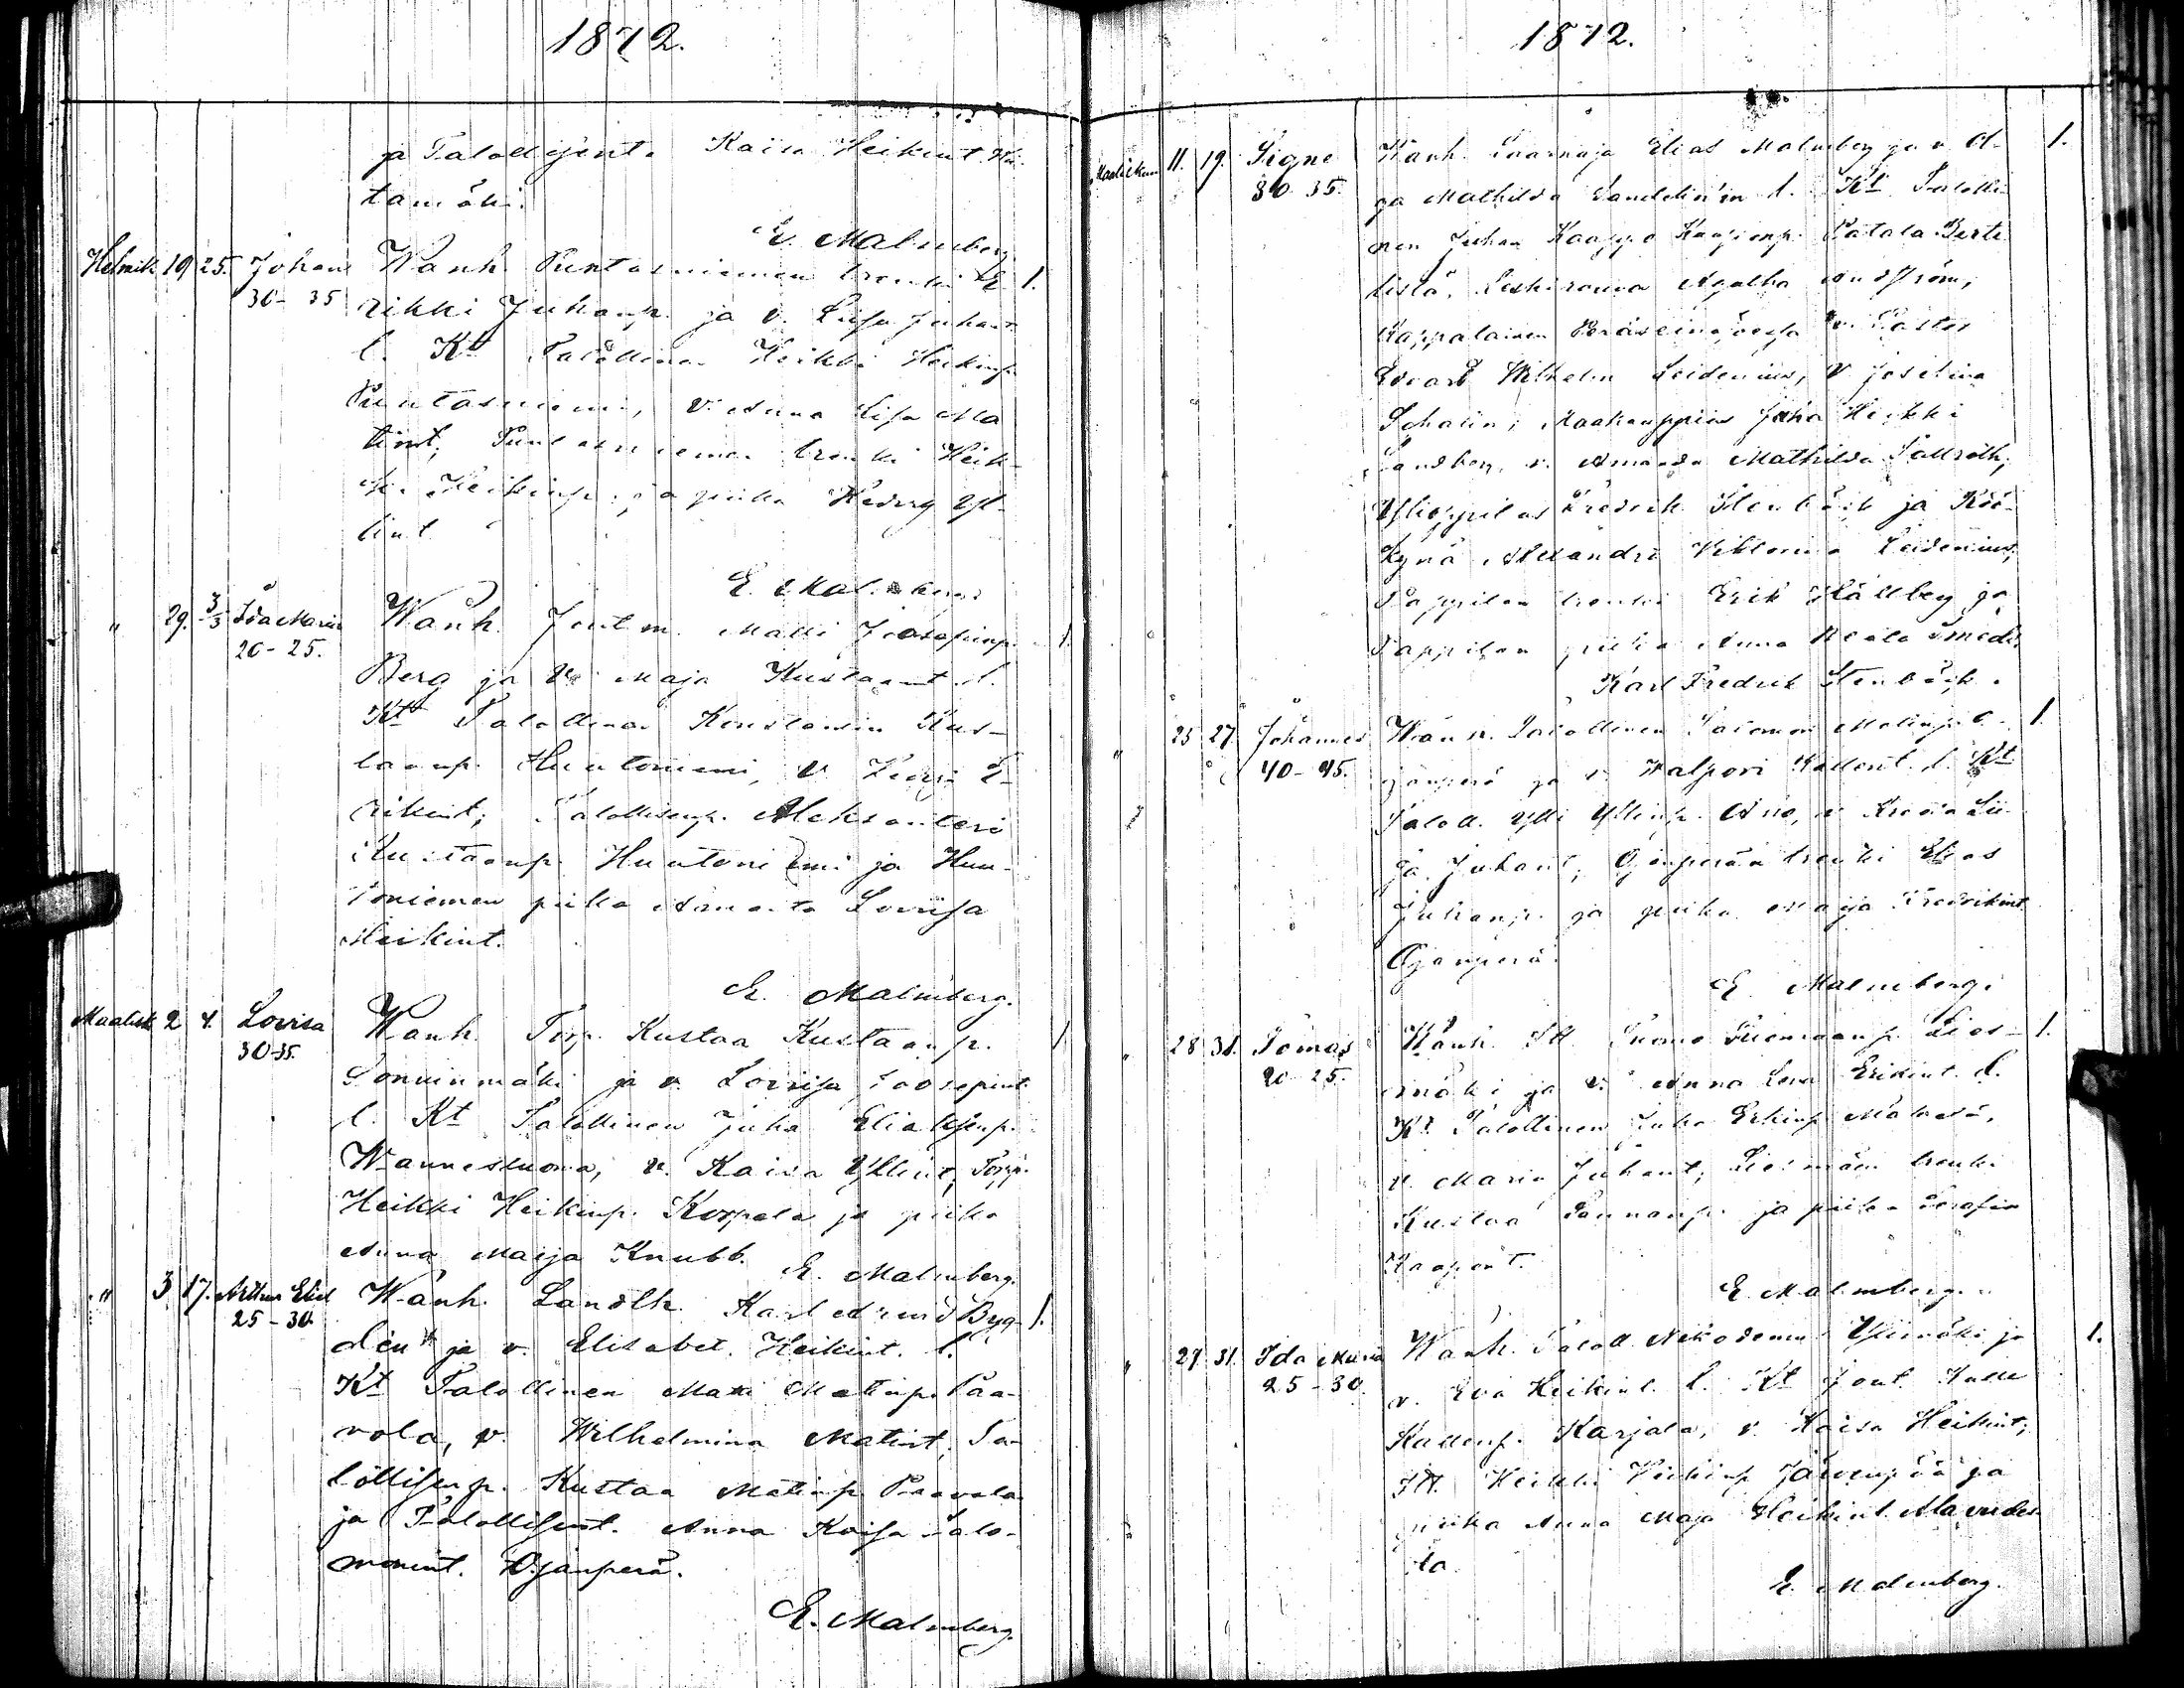 1872.
ja Talollisent. Kaisa Heikint
tamäki.
E. Malmberg
Helmik. 19 25. Johan Wanh. Puntasniemen trenki E 1.
30-35 rikki Juhanp. ja v. Liisa Juhant.
l. Kt Talollinen Heikki Heikinp.
Puntasniemi, v. Anna Lisa Ma
tint; Puntasniemen trenki Heik-
ki Heikinp. ja piika Hedvig Yl-
lint.
E. Malmberg
" 29. 3/3 Ida Maria Wanh. Matti Joosepinp. 1.
20-25. Berg ja v. Maja Kustaant. l.
Kt Talollinen Konstantin Kus-
taanp. Huntoniemi, v. E-
rikint; Talollisenp. Aleksanteri
Kustaanp. Huutoniemi ja Huu-
toniemen piika Amanta Lovisa
Heikint.
E. Malmberg.
Maalisk. 2 4. Lovisa Wanh. Torp. Kustaa Kustaanp. 1.
30-35. ja v. Lovisa Joosepint.
l. Kt Talollinen Juha Eliaksenp.
Wannesluoma, v. Kaisa Yllint; Torpp.
Heikki Heikinp. Korpela ja piika
Anna Maija Knubb.
E. Malmberg.
" 3 17. Arthur Eliel Wanh. Landth. Karl Byg- 1.
25-30. dén ja v. Elisabet Heikint. l.
Kt Talollinen Matti Matinp. Paa-
vola, v. Wilhelmina Matint, Ta-
lollisenp. Kustaa Matinp. Paavola
ja Talollisent. Anna Kaisa Salo-
monint. Ojanperä.
E. Malmberg.
1872.
Maaliskuu 11. 19. Signe Wanh. Elias Malmberg ja v. Ol- 1.
30 35. ga Mathilda Sandelin'in l. Kt Talolli-
nen Juhan Kaappo Kaaponp. Patala Perte-
listä, Leskirouva Agatha
Kappalainen Peräseinäjoella v. Pastor
Edvard Wilhelm Leidenius, v. Josefina
Schalin; Maakauppias Juha Heikki
Sandberg, v. Amanda Mathilda
Ylioppilas Fredrik Stenbäck ja
Alexandra Viktoria Leidenius;
Pappilan trenki Erik Hällberg ja
Pappilan piika Anna Smeds.
Karl Fredrik Stenbäck.
" 25 27. Johannes Wanh. Talollinen Salomon Matinp. O- 1.
40-45. janperä ja v. Walpori Kallent. l. Kt
Taloll. Ylli Yllinp. Aho, v. Lii-
sa Juhant; Ojanperän trenki Elias
Juhanp. ja piika Maija Fredrikint.
Ojanperä.
E. Malmberg.
" 28 31. Tomas Wanh. Itl. Tuomo Tuomaanp. Lios- 1.
20-25. mäki ja v. Anna Lena Erikint. l.
Kt Talollinen Juha Erkinp.
v. Maria Juhant; trenki
Kustaa ja piika Serafia
Kaapont.
E. Malmberg.
" 29. 31. Ida Maria Wanh. Taloll. Nikodemus Ylimäki ja 1.
25-30. v. Eva Heikint. l. Kt Kalle
Kallenp. Karjala, v. Kaisa Heikint;
Itl. Heikki Heikinp. Järvenpää ja
piika Anna Maja Heikint. Alaviides-
ta.
E. Malmberg.